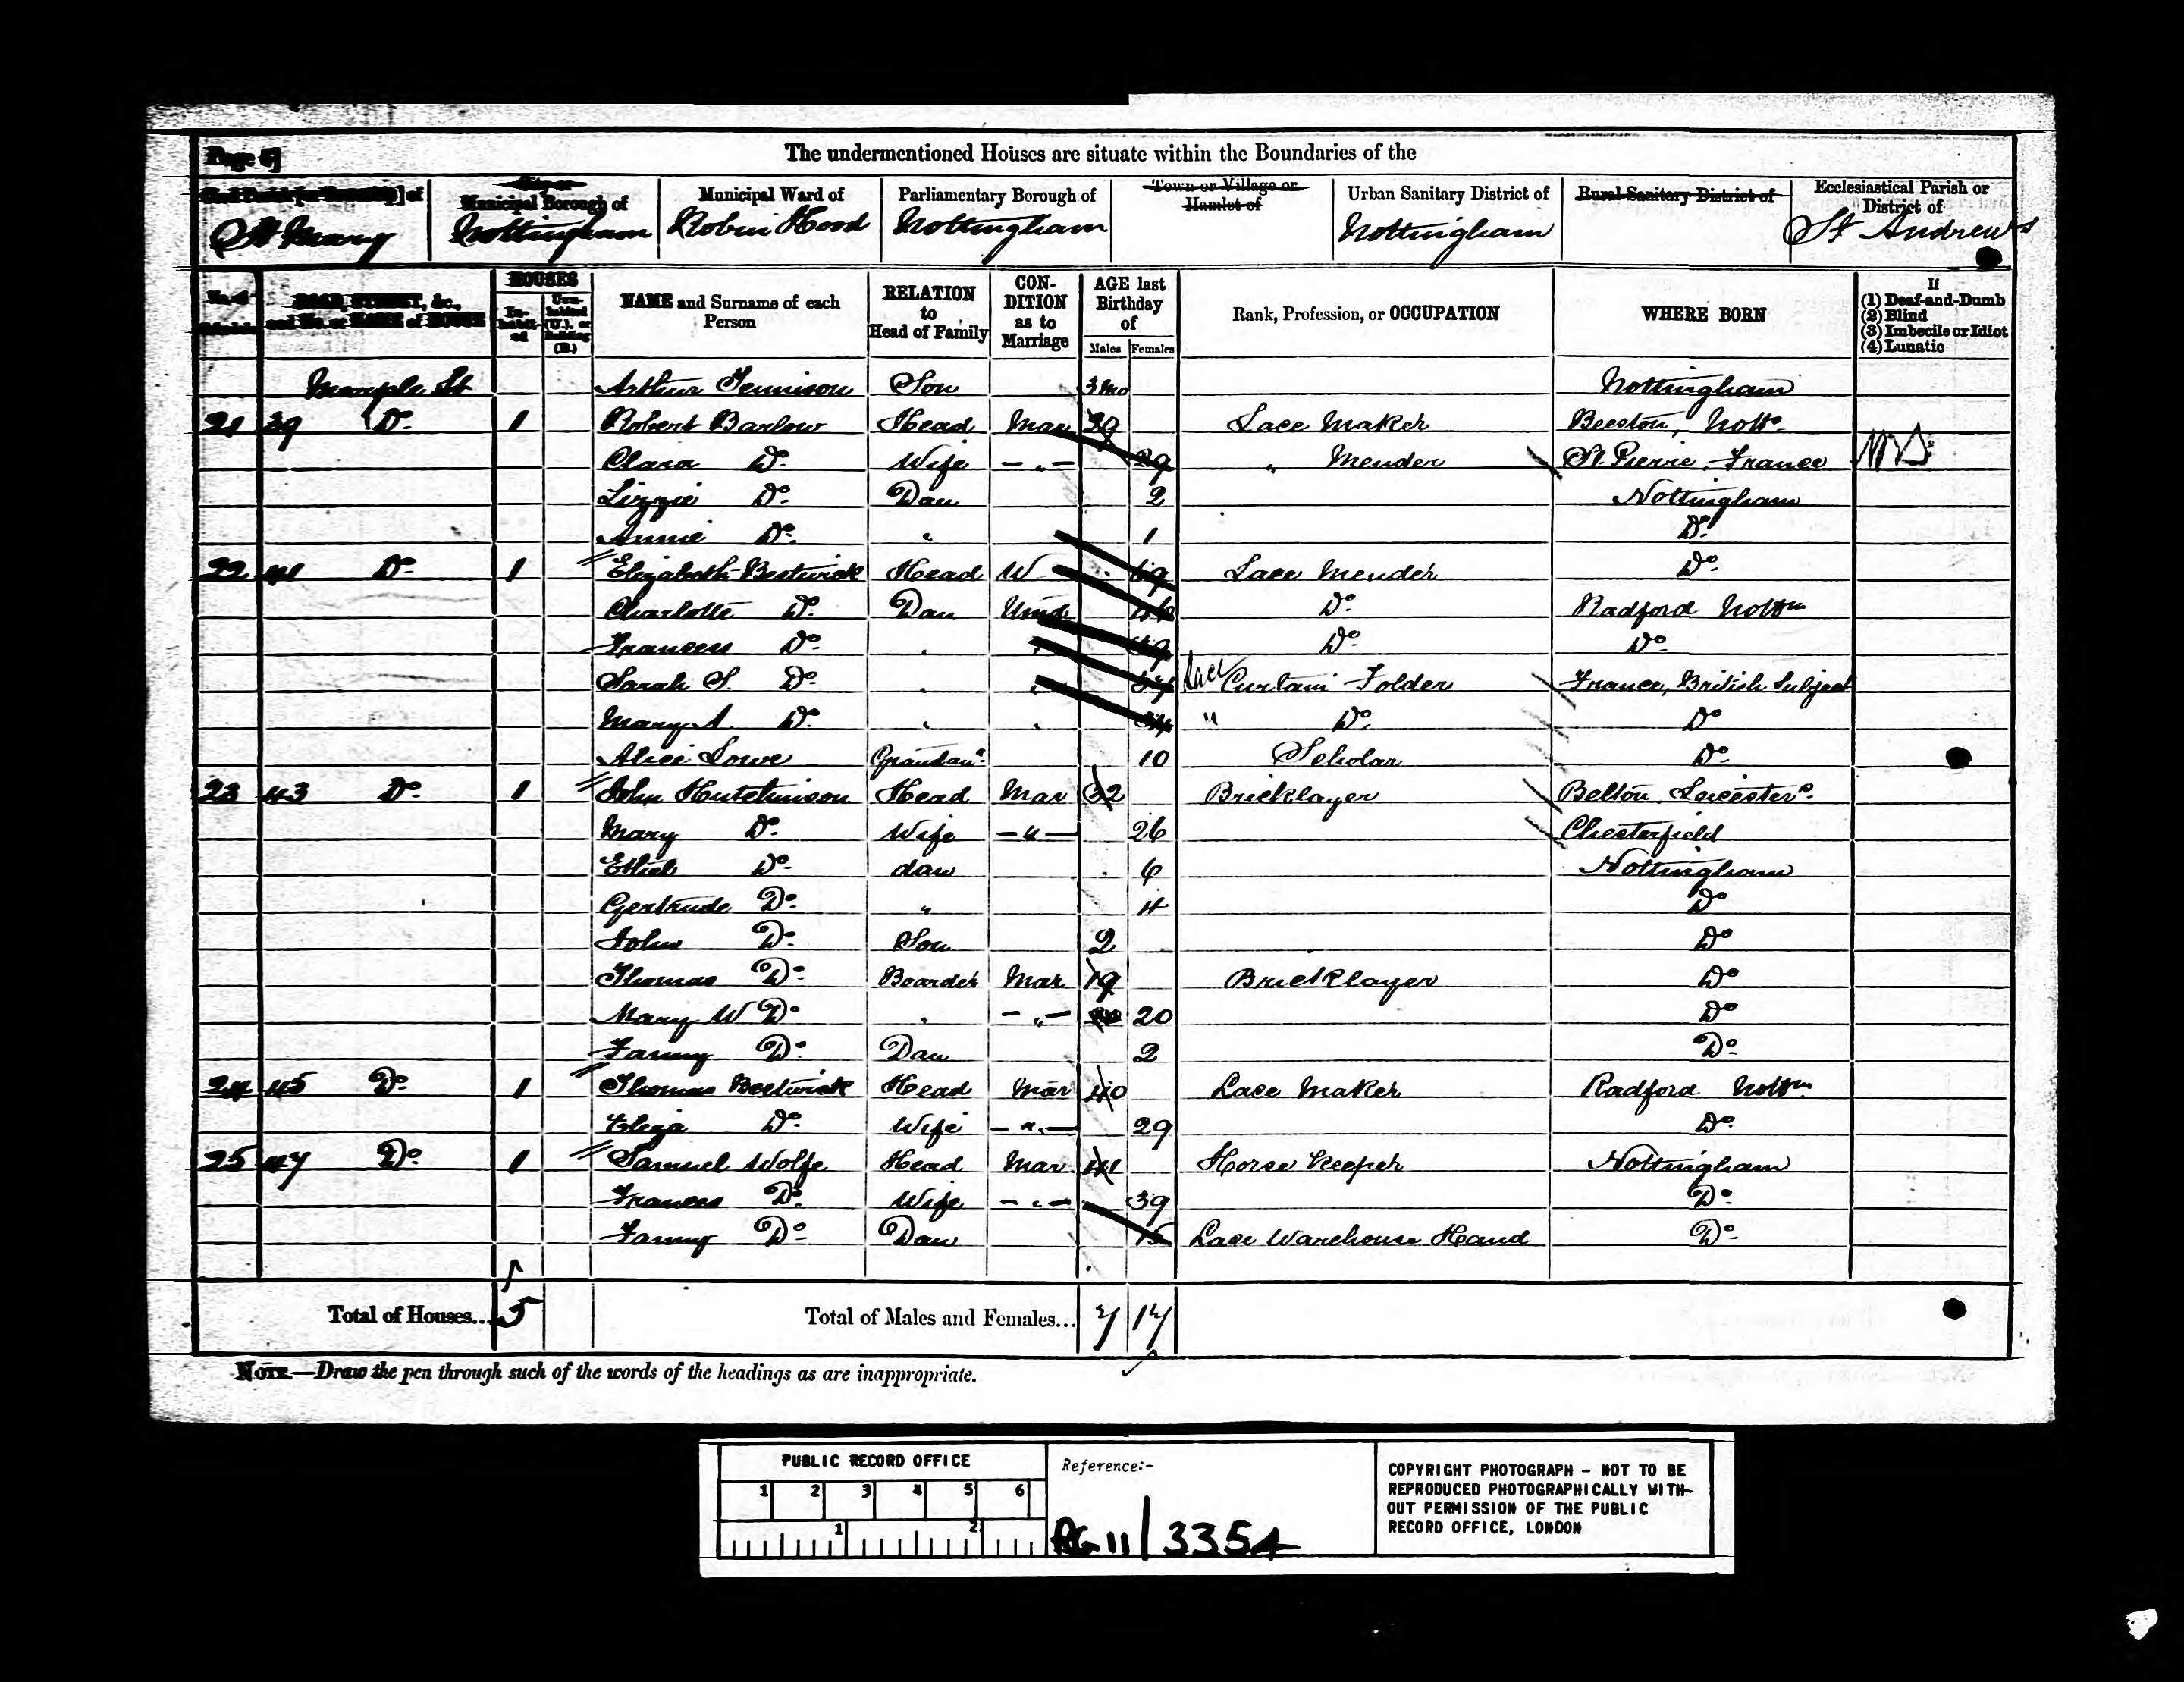 Page 6]
The undermentioned Houses are situate within the Boundaries of the
Civil Parish [or Township] of
St Mary
City or Municipal Borough of
Nottingham
Municipal Ward of
Robin Hood
Parliamentary Borough of
Nottingham
Town or Village or Hamlet of
Urban Sanitary District of
Nottingham
Rural Sanitary District of
Ecclesiastical Parish or District of
St Andrew's
ROAD, STREET, &c., and No. or NAME of HOUSE
HOUSES
In-habit-ed
Un-habited (U.), or Building (B.)
NAME and Surname of each Person
RELATION to Head of Family
CON-DITION as to Marriage
AGE last Birthday of
Males Females
Rank, Profession, or OCCUPATION
WHERE BORN
If
(1) Deaf-and-Dumb
(2) Blind
(3) Imbecile or Idiot
(4) Lunatic
St Arthur Tennison Son 3 mo Nottingham
21 39 Do 1 Robert Barlow Head Mar 39 Lace Maker Beeston, Notts
Clara Do Wife — " — 29 " Mender St Pierre, France
Lizzie Do Dau 2 Nottingham
Annie Do " 1 Do
22 41 Do 1 Elizabeth Bestwick Head W Lace Mender Do
Charlotte Do Dau Unm Do Radford Nottm
Frances Do " " Do Do
Sarah S. Do " " Lace Curtain Folder France, British Subject
Mary A. Do " " " Do Do
Alice Lowe Grandaur 10 Scholar Do
23 43 Do 1 John Hutchinson Head Mar 32 Bricklayer Belton Leicesters
Mary Do Wife — " — 26 Chesterfield
Ethel Do dau 6 Nottingham
Gertrude Do " 4 Do
John Do Son 2 Do
Thomas Do Boarder Mar 19 Bricklayer Do
Mary W Do " — " — 20 Do
Fanny Do Dau 2 Do
24 45 Do 1 Thomas Bestwick Head Mar 40 Lace Maker Radford Nottm
Eliza Do Wife — " — 29 Do
25 47 Do 1 Samuel Wolfe Head Mar 41 Horse Keeper Nottingham
Frances Do Wife — " — 39 Do
Fanny Do Dau 15 Lace Warehouse Hand Do
Total of Houses... 5 Total of Males and Females... 7 17
NOTE.—Draw the pen through such of the words of the headings as are inappropriate.
PUBLIC RECORD OFFICE
1 2 3 4 5 6
1 2
Reference:-
RG 11 / 3354
COPYRIGHT PHOTOGRAPH - NOT TO BE
REPRODUCED PHOTOGRAPHICALLY WITH-
OUT PERMISSION OF THE PUBLIC
RECORD OFFICE, LONDON